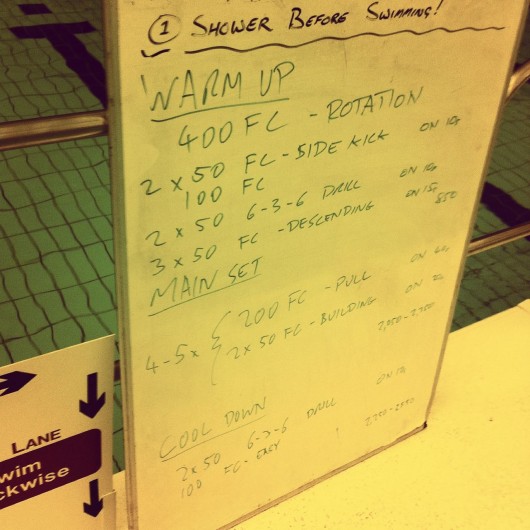 ① SHOWER BEFORE SWIMMING!
WARM UP
400 FC - ROTATION
2 x 50 FC - SIDE KICK ON 15s
100 FC
2 x 50 6-3-6 DRILL ON 15s
3 x 50 FC - DESCENDING ON 15s
850
MAIN SET
4-5x { 200 FC - PULL ON
2 x 50 FC - BUILDING ON
COOL DOWN
2 x 50 6-3-6 DRILL ON
100 FC - EASY
LANE
wim
ckwise